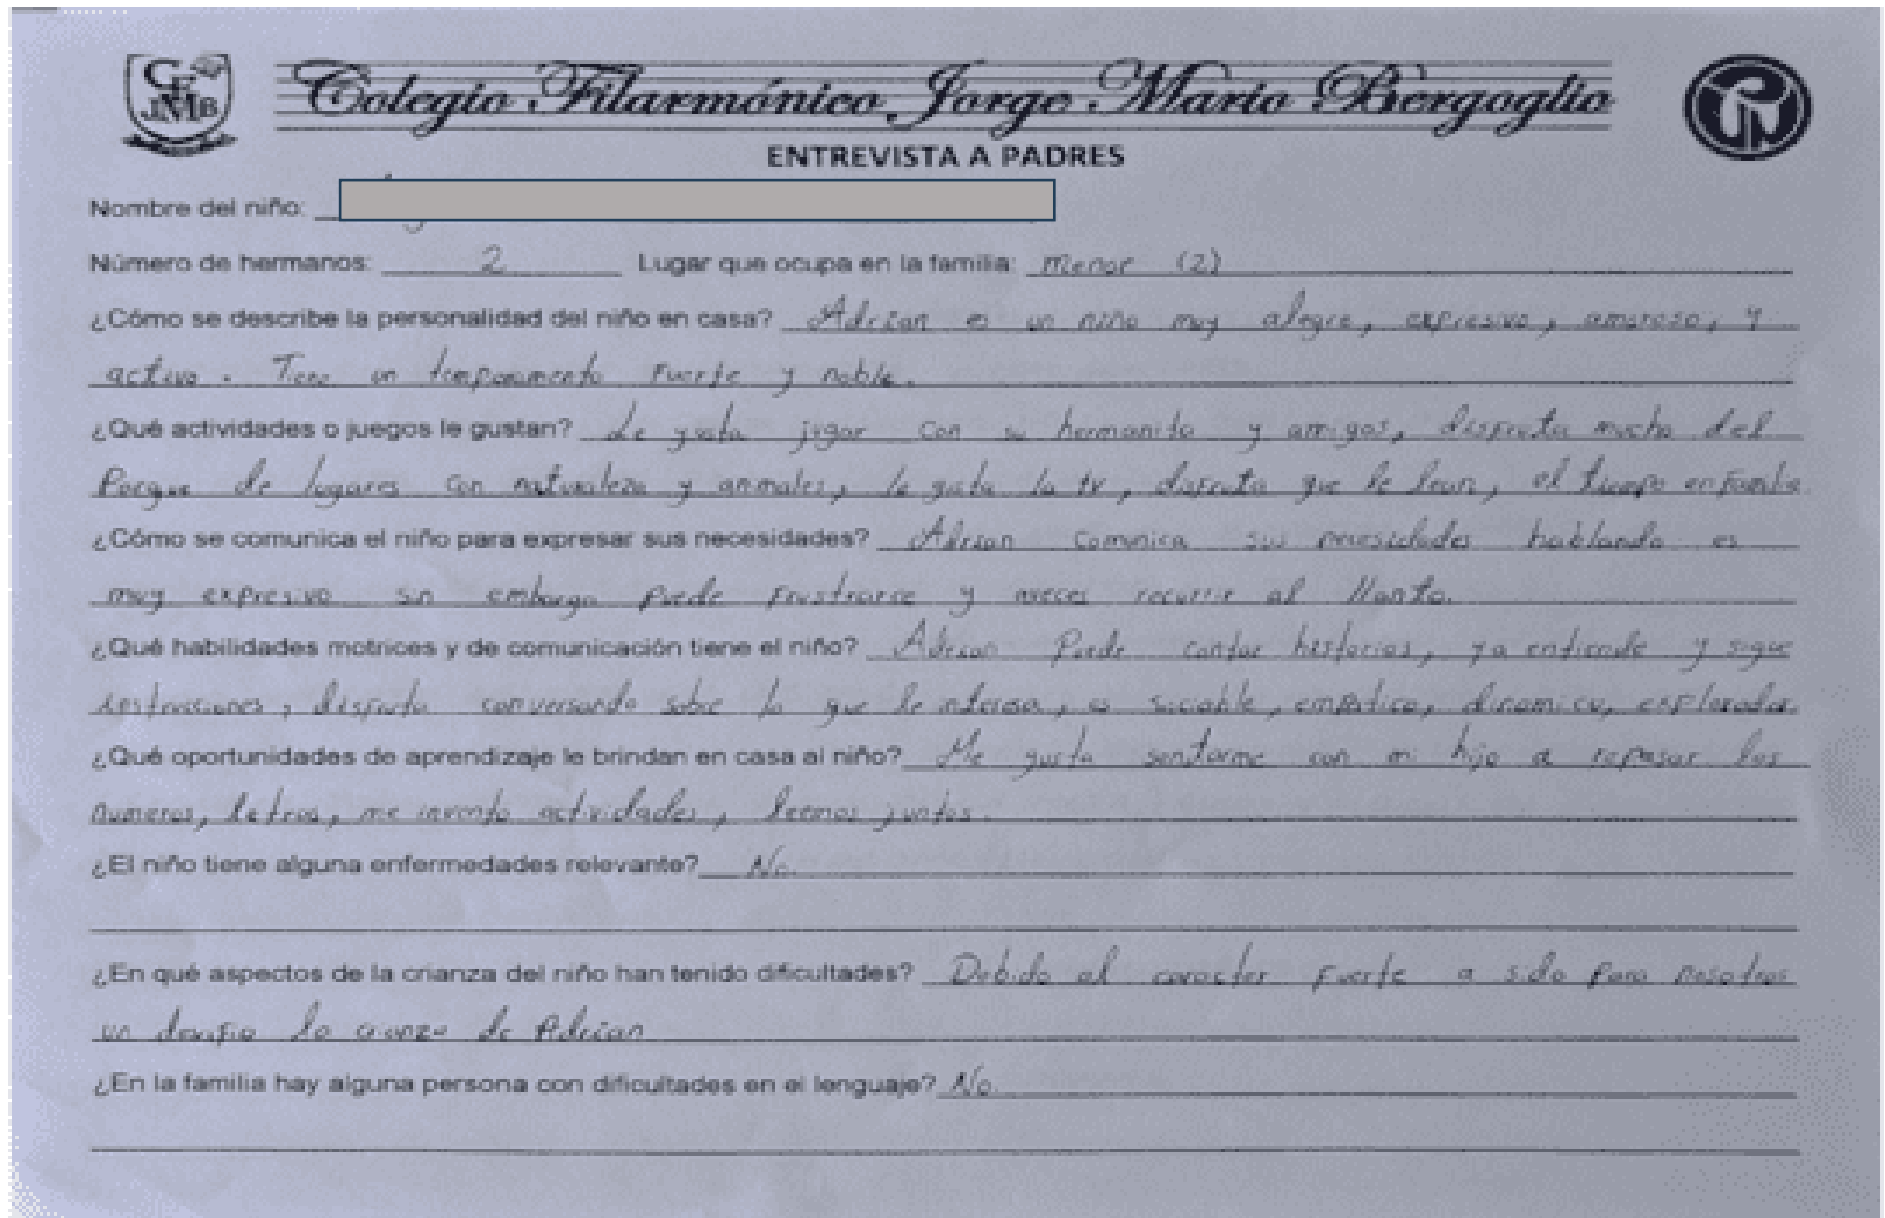 CF
JMB
Colegio Filarmónico Jorge Mario Bergoglio
ENTREVISTA A PADRES
Nombre del niño:
Número de hermanos: 2 Lugar que ocupa en la familia: menor (2)
¿Cómo se describe la personalidad del niño en casa? Adrian es un niño muy alegre, expresivo, amoroso, y
activo. Tiene un temperamento fuerte y noble.
¿Qué actividades o juegos le gustan? Le gusta jugar con su hermanita y amigos, disfruta mucho del
Parque de lugares con naturaleza y animales, le gusta la tv, disfruta que le lean, el tiempo en familia.
¿Cómo se comunica el niño para expresar sus necesidades? Adrian comunica sus necesidades hablando es
muy expresivo sin embargo puede frustrarse y aveces recurrir al llanto.
¿Qué habilidades motrices y de comunicación tiene el niño? Adrian Puede contar historias, ya entiende y sigue
instrucciones, disfruta conversando sobre lo que le interesa, es sociable, empático, dinamico, explorador.
¿Qué oportunidades de aprendizaje le brindan en casa al niño? Me gusta sentarme con mi hijo a repasar los
numeros, letras, me invento actividades, leemos juntos.
¿El niño tiene alguna enfermedades relevante? No.
¿En qué aspectos de la crianza del niño han tenido dificultades? Debido al caracter fuerte a sido para nosotros
un desafio la crianza de Adrian
¿En la familia hay alguna persona con dificultades en el lenguaje? No.